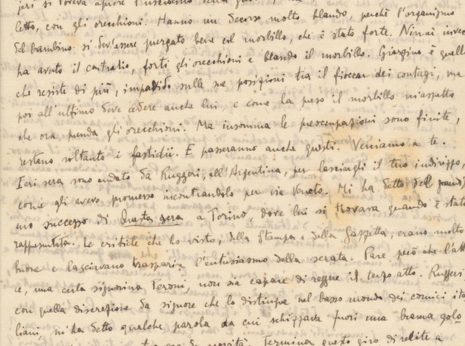 letto, con gli orecchioni. Hanno un decorso molto blando, perché l'organismo
del bambino si dev'essere purgato bene col morbillo, che è stato forte. Ninni invece
ha avuto il contrario, forti gli orecchioni e blando il morbillo. Giorgino è quello
che resiste di più, impavido sulle sue posizioni tra il fioccar dei contagi, ma
poi all'ultimo deve cedere anche lui e come ha preso il morbillo m'aspetto
che ora prenda gli orecchioni. Ma insomma le preoccupazioni sono finite,
restano soltanto i fastidii. E passeranno anche questi. Veniamo a te.
Ieri sera sono andato da Ruggeri, all'Argentina, per lasciargli il tuo indirizzo,
come gli avevo promesso incontrandolo per via Veneto. Mi ha detto del grandis
simo successo di Questa sera a Torino, dove lui si trovava quando è stata
rappresentata. Le critiche che ho visto, della Stampa e della Gazzetta, erano molto
buone e lasciavano trasparir l'entusiasmo della serata. Pare però che l'attri
ce, una certa signorina non sia capace di reggere il terzo atto. Ruggeri
con quella discrezione da signore che lo distingue nel basso mondo dei comici ita
liani, m'ha detto qualche parola da cui schizzava fuori una brama
Termina questo giro di recite a